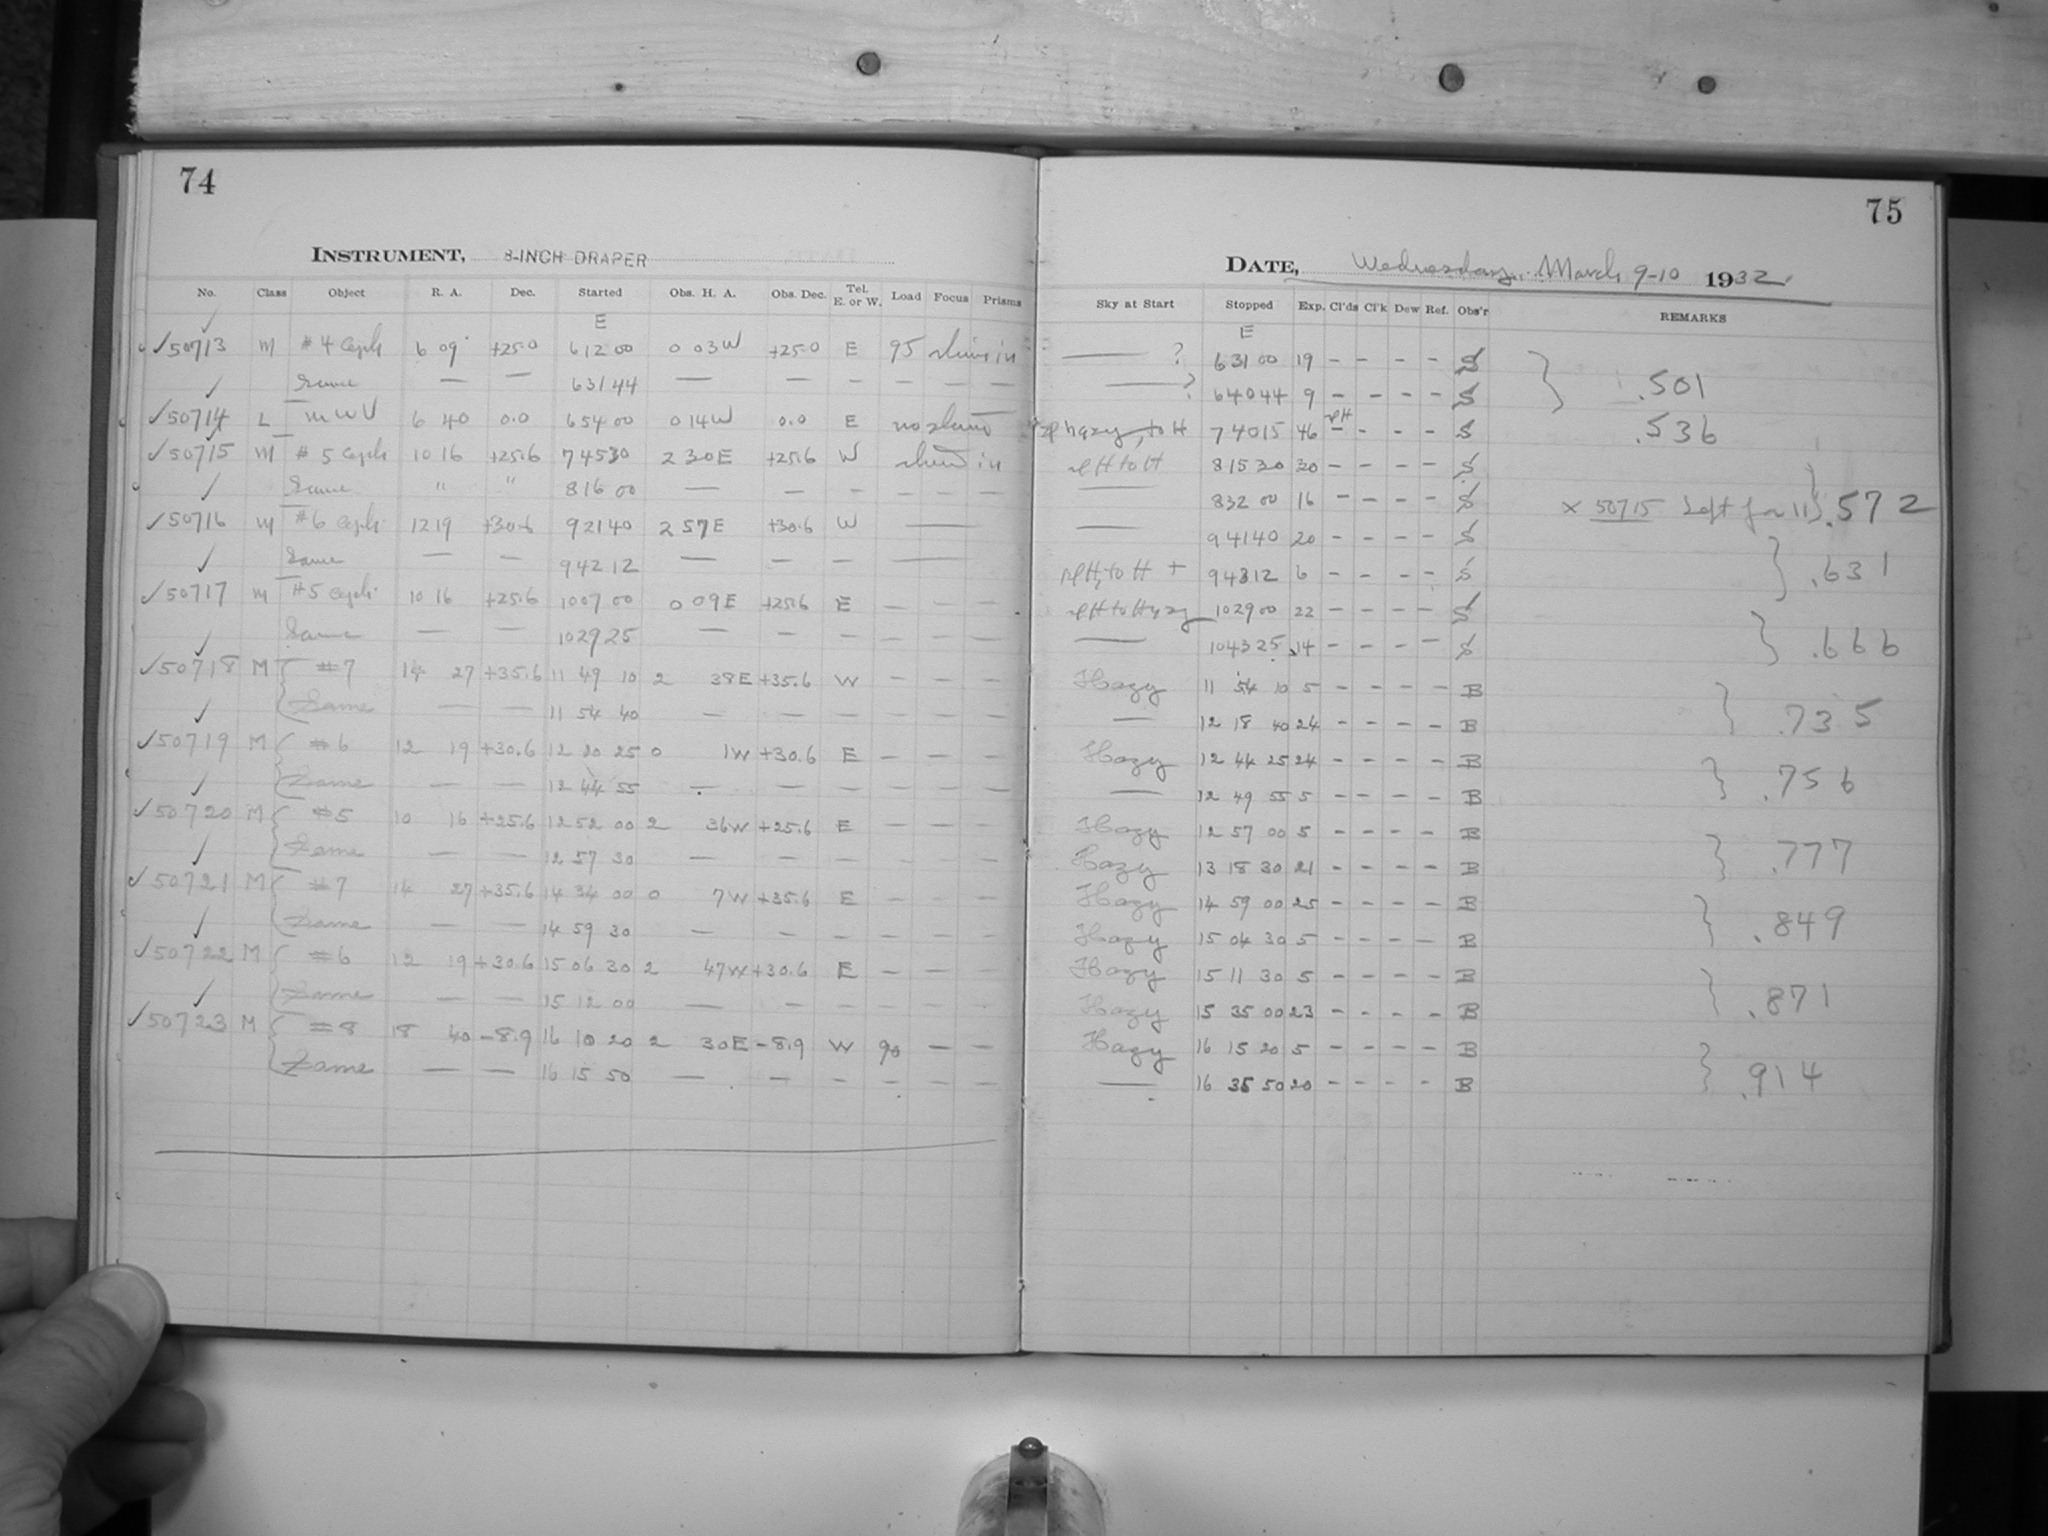 74
INSTRUMENT, 8-INCH DRAPER
No. Class Object R. A. Dec. Started Obs. H. A. Obs. Dec. Tel. E. or W. Load Focus Prisms
E
✓50713 M #4 Ceph 6 09 +25.0 6 12 00 0 03W +25.0 E 95
✓ Same — — 6 31 44 — — – – – –
✓50714 L MWV 6 40 0.0 6 54 00 0 14W 0.0 E no
✓50715 M #5 Ceph 10 16 +25.6 7 45 30 2 30E +25.6 W in
✓ Same " " 8 16 00 — – – – – –
✓50716 M #6 Ceph 12 19 +30.6 9 21 40 2 57E +30.6 W —
✓ Same — — 9 42 12 — – – —
✓50717 M #5 Ceph 10 16 +25.6 10 07 00 0 09E +25.6 E – – –
✓ Same — — 10 29 25 — – – – – –
✓50718 M #7 14 27 +35.6 11 49 10 2 38E +35.6 W – – –
✓ Same — — 11 54 40 – – – – – –
✓50719 M #6 12 19 +30.6 12 20 25 0 1W +30.6 E – – –
✓ Same — — 12 44 55 – – – – – –
✓50720 M #5 10 16 +25.6 12 52 00 2 36W +25.6 E – – –
✓ Same — — 12 57 30 – – – – – –
✓50721 M #7 14 27 +35.6 14 34 00 0 7W +35.6 E – – –
✓ Same — — 14 59 30 – – – – – –
✓50722 M #6 12 19 +30.6 15 06 30 2 47W +30.6 E – – –
✓ Same — — 15 12 00 — – – – – –
✓50723 M #8 18 40 -8.9 16 10 20 2 30E -8.9 W 90 – –
Same — — 16 15 50 — – – – – –
75
DATE, Wednesday, March 9-10 1932.
Sky at Start Stopped Exp. Cl'ds Cl'k Dew Ref. Obs'r REMARKS
E
— ? 6 31 00 19 – – – – S
— ? 6 40 44 9 – – – – S .501
hazy, to H 7 40 15 46 – – – – S .536
to H 8 15 30 30 – – – – S
— 8 32 00 16 – – – – S × 50715 left for 11 .572
— 9 41 40 20 – – – – S
to H + 9 48 12 6 – – – – S .631
to Hazy 10 29 00 22 – – – – S
— 10 43 25 14 – – – – S .666
Hazy 11 54 10 5 – – – – B
— 12 18 40 24 – – – – B .735
Hazy 12 44 25 24 – – – – B
— 12 49 55 5 – – – – B .756
Hazy 12 57 00 5 – – – – B
Hazy 13 18 30 21 – – – – B .777
Hazy 14 59 00 25 – – – – B
Hazy 15 04 30 5 – – – – B .849
Hazy 15 11 30 5 – – – – B
Hazy 15 35 00 23 – – – – B .871
Hazy 16 15 20 5 – – – – B
— 16 35 50 20 – – – – B .914